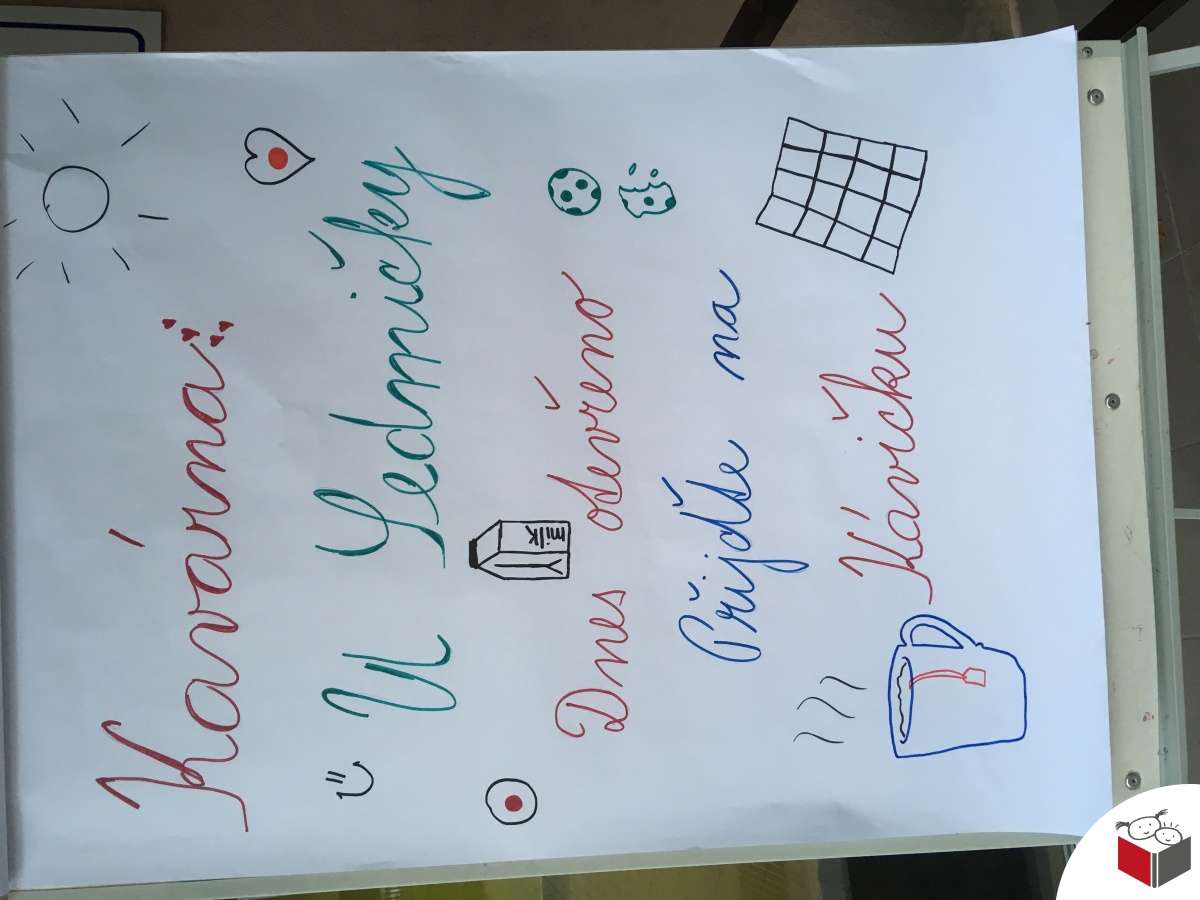 Kavárna
U Sedmičky
milk
Dnes otevřeno
Přijďte na
Kávičku